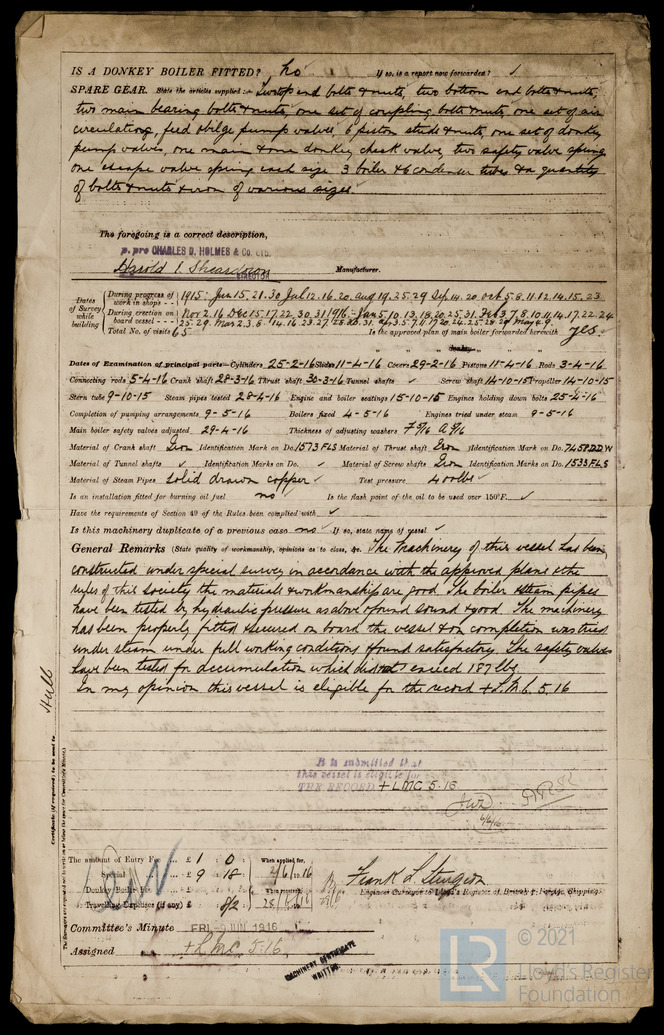 IS A DONKEY BOILER FITTED? no If so, is a report now forwarded? ✓
SPARE GEAR. State the articles supplied:— Two top end bolts & nuts, two bottom end bolts & nuts,
two main bearing bolts & nuts, one set of coupling bolts & nuts, one set of air
circulating, feed & bilge pump valves, 6 piston studs & nuts, one set of donkey
pump valves, one main & one donkey check valve, two safety valve springs
one escape valve spring each size 3 boiler & 6 condenser tubes & a quantity
of bolts & nuts & iron of various sizes.
The foregoing is a correct description,
p. pro CHARLES D. HOLMES & Co. LTD.
Harold I. Sheardown DIRECTOR Manufacturer.
Dates of Survey while building
During progress of work in shops -- 1915: Jun 15. 21. 30 Jul 12. 16. 20. Aug 19. 25. 29 Sep 14. 20 Oct 5. 8. 11. 12. 14. 15. 23
During erection on board vessel --- Nov 2. 16 Dec 15. 17. 22. 30. 31 1916:- Jan 5. 10. 13. 18. 20. 25. 31. Feb 3. 7. 8. 10. 11. 14. 17. 22. 24
25. 29. Mar 2. 3. 8. 14. 16. 23. 27. 28. 30. 31. Apr 3. 5. 7. 11. 17. 20. 24. 25. 28. 29. May 4. 9.
Total No. of visits 65 Is the approved plan of main boiler forwarded herewith yes.
" " " donkey " " "
Dates of Examination of principal parts—Cylinders 25-2-16 Slides 11-4-16 Covers 29-2-16 Pistons 11-4-16 Rods 3-4-16
Connecting rods 5-4-16 Crank shaft 28-3-16 Thrust shaft 30-3-16 Tunnel shafts ✓ Screw shaft 14-10-15 Propeller 14-10-15
Stern tube 9-10-15 Steam pipes tested 28-4-16 Engine and boiler seatings 15-10-15 Engines holding down bolts 25-4-16
Completion of pumping arrangements 9-5-16 Boilers fixed 4-5-16 Engines tried under steam 9-5-16
Main boiler safety valves adjusted 29-4-16 Thickness of adjusting washers F 5/16 A 9/16
Material of Crank shaft Iron Identification Mark on Do. 1573 FLS Material of Thrust shaft Iron Identification Mark on Do. 7458 DDW
Material of Tunnel shafts ✓ Identification Marks on Do. ✓ Material of Screw shafts Iron Identification Marks on Do. 1533 FLS
Material of Steam Pipes Solid drawn copper ✓ Test pressure 400 lbs ✓
Is an installation fitted for burning oil fuel no ✓ Is the flash point of the oil to be used over 150°F. ✓
Have the requirements of Section 49 of the Rules been complied with ✓
Is this machinery duplicate of a previous case no ✓ If so, state name of vessel ✓
General Remarks (State quality of workmanship, opinions as to class, &c. The Machinery of this vessel has been
constructed under special survey in accordance with the approved plans & the
rules of this society the materials & workmanship are good. The boiler & steam pipes
have been tested by hydraulic pressure as above & found sound & good. The machinery
has been properly fitted & secured on board the vessel & on completion was tried
under steam under full working conditions & found satisfactory. The safety valves
have been tested for accumulation which did not exceed 187 lbs
In my opinion this vessel is eligible for the record + L.M.C. 5.16
It is submitted that
this vessel is eligible for
THE RECORD. + LMC 5.16
Hull
Certificate (if required) to be sent to
The amount of Entry Fee ... £ 1 : 0 : When applied for,
Special ... £ 9 : 18 : 2/6/1916
Donkey Boiler Fee ... £ : : When received,
Travelling Expenses (if any) £ : 8/2 :
Frank L. Sturgeon
Engineer Surveyor to Lloyd's Register of British & Foreign Shipping.
Committee's Minute FRI. 9 JUN 1916
Assigned + LMC 5.16
MACHINERY CERTIFICATE
WRITTEN
LR © 2021
Lloyd's Register
Foundation